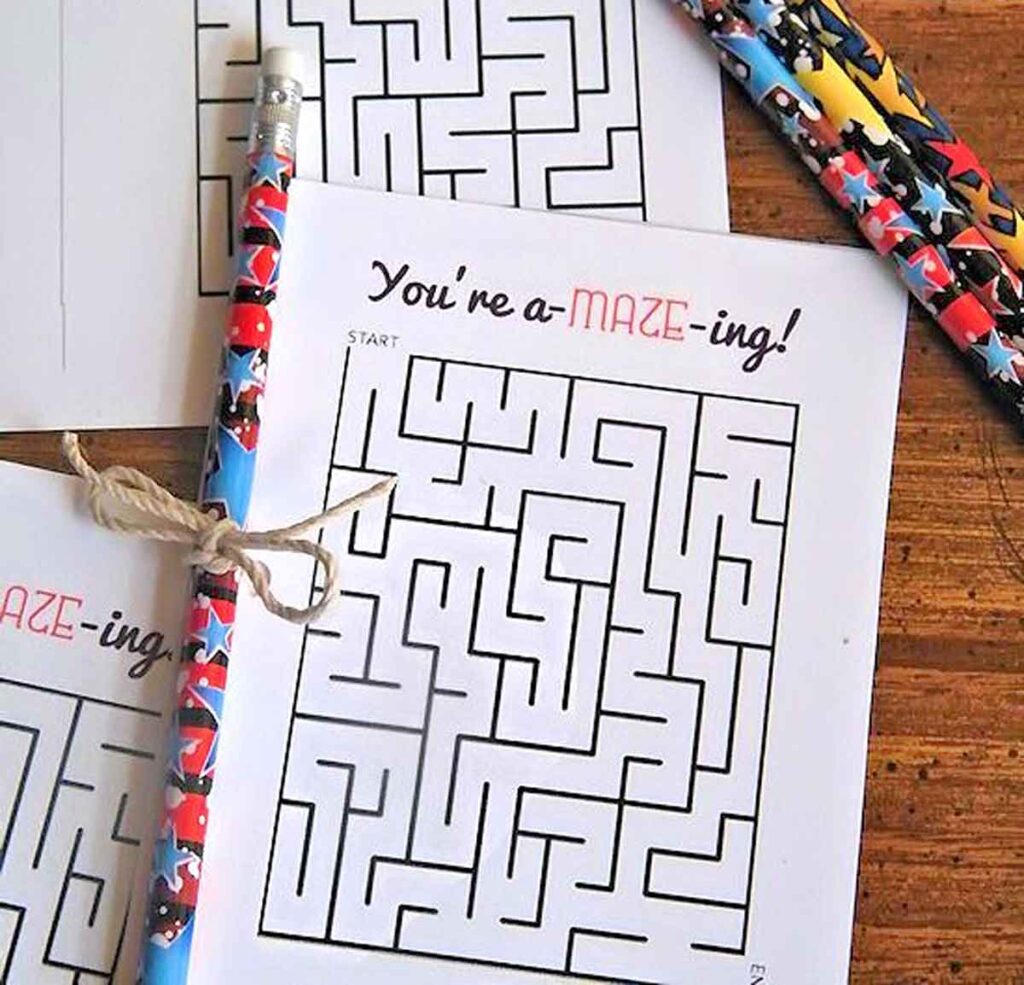 You're a-MAZE-ing!
START
AZE-ing
EN